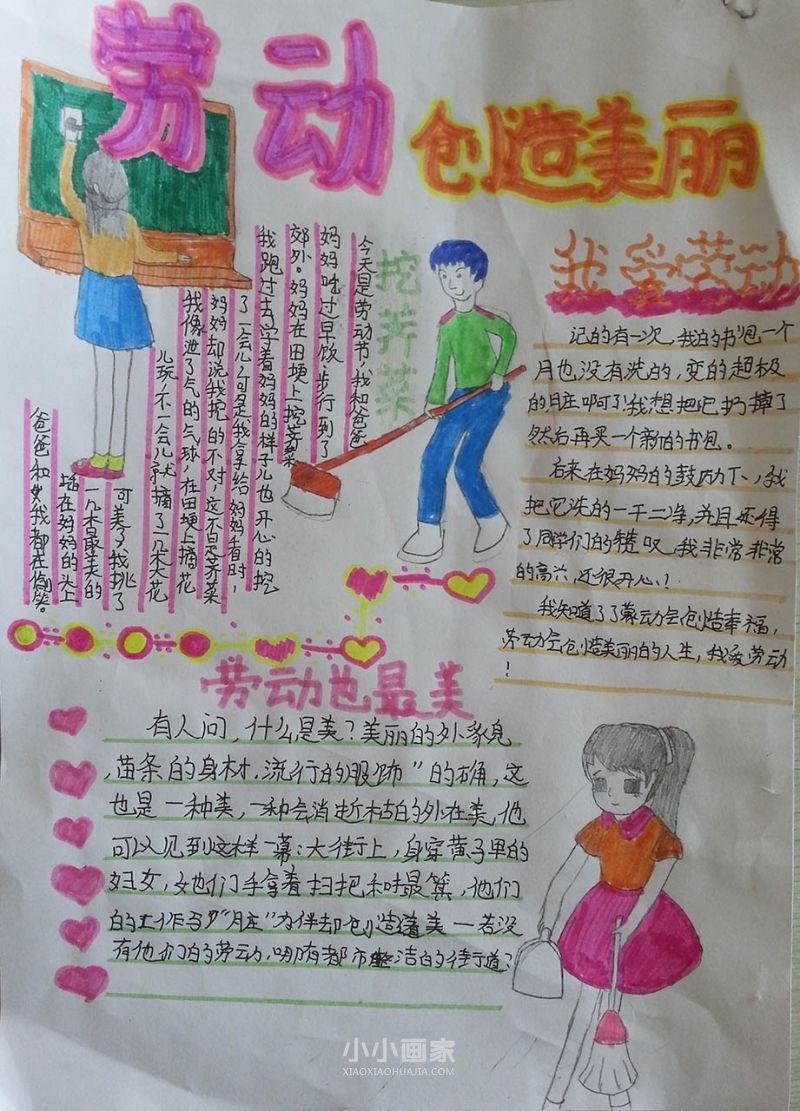 劳动
创造美丽
挖荠菜
今天是劳动节,我和爸爸
妈妈吃过早饭,步行到了
郊外。妈妈在田埂上挖荠菜
我跑过去学着妈妈的样子儿也开心的挖
了一会儿,可是我拿给妈妈看时,
妈妈却说我挖的不对,这不是荠菜
我像泄了气的气球,在田埂上摘花
儿玩,不一会儿就摘了一朵朵花
可美了,我挑了
一几朵最美的
插在妈妈的头上
爸爸和我都在偷笑。
我爱劳动
记的有一次,我的书包一个
月也没有洗的,变的超极
的月庄啊可了!我想把它扔掉了
然后再买一个新的书包。
右来在妈妈的鼓励下,我
把它洗的一干二净,并且还得
了同学们的赞叹,我非常非常
的高兴,还很开心!
我知道了了劳动会创造幸福,
劳动会创造美丽的人生,我爱劳动
!
劳动也最美
有人问,什么是美?美丽的外象
,苗条的身材,流行的服饰”的确,这
也是一种美,一种会消逝的外在美,他
可以见到这样一幕:大街上,身穿黄子里的
妇女,她们手拿着扫把和簸箕,他们
的工作与“月庄”为伴却创造着美一若没
有他们的劳动,哪有都市整洁的街道?
小小画家
XIAOXIAOHUAJIA.COM